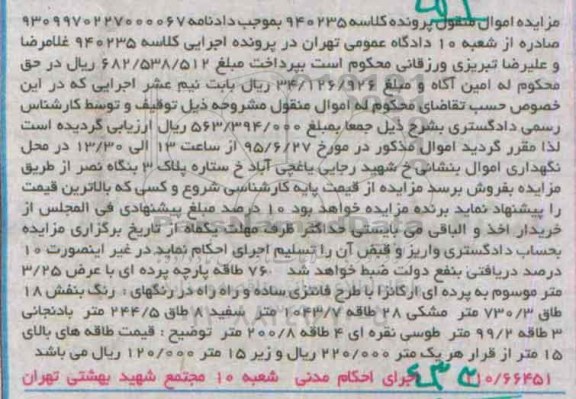 مزایده اموال منقول پرونده کلاسه ۹۴۰۲۳۵ بموجب دادنامه ۹۳۰۹۹۷۰۲۲۷۰۰۰۰۶۷
صادره از شعبه ۱۰ دادگاه عمومی تهران در پرونده اجرایی کلاسه ۹۴۰۲۳۵ غلامرضا
و علیرضا تبریزی ورزقانی محکوم است بپرداخت مبلغ ۶۸۲/۵۳۸/۵۱۲ ریال در حق
محکوم له امین آگاه و مبلغ ۳۴/۱۲۶/۹۲۶ ریال بابت نیم عشر اجرایی که در این
خصوص حسب تقاضای محکوم له اموال منقول مشروحه ذیل توقیف و توسط کارشناس
رسمی دادگستری بشرح ذیل جمعا بمبلغ ۵۶۳/۳۹۴/۰۰۰ ریال ارزیابی گردیده است
لذا مقرر گردید اموال مذکور در مورخ ۹۵/۶/۲۷ از ساعت ۱۳ الی ۱۳/۳۰ در محل
نگهداری اموال بنشانی خ شهید رجایی یاغچی آباد خ ستاره پلاک ۳ بنگاه نصر از طریق
مزایده بفروش برسد مزایده از قیمت پایه کارشناسی شروع و کسی که بالاترین قیمت
را پیشنهاد نماید برنده مزایده خواهد بود ۱۰ درصد مبلغ پیشنهادی فی المجلس از
خریدار اخذ و الباقی می بایستی حداکثر ظرف مهلت یکماه از تاریخ برگزاری مزایده
بحساب دادگستری واریز و قبض آن را تسلیم اجرای احکام نماید در غیر اینصورت ۱۰
درصد دریافتی بنفع دولت ضبط خواهد شد ۷۶ طاقه پارچه پرده ای با عرض ۳/۲۵
متر موسوم به پرده ای ارگانزا با طرح فانتزی ساده و راه راه در رنگهای : رنگ بنفش ۱۸
طاق ۷۳۰/۳ متر مشکی ۲۸ طاقه ۱۰۴۳/۷ متر سفید ۸ طاق ۲۴۴/۵ متر بادنجانی
۳ طاقه ۹۹/۲ متر طوسی نقره ای ۴ طاقه ۲۰۰/۸ متر توضیح : قیمت طاقه های بالای
۱۵ متر از قرار هر یک متر ۲۲۰/۰۰۰ ریال و زیر ۱۵ متر ۱۲۰/۰۰۰ ریال می باشد
۱۱۰/۶۶۴۵۱ اجرای احکام مدنی شعبه ۱۰ مجتمع شهید بهشتی تهران